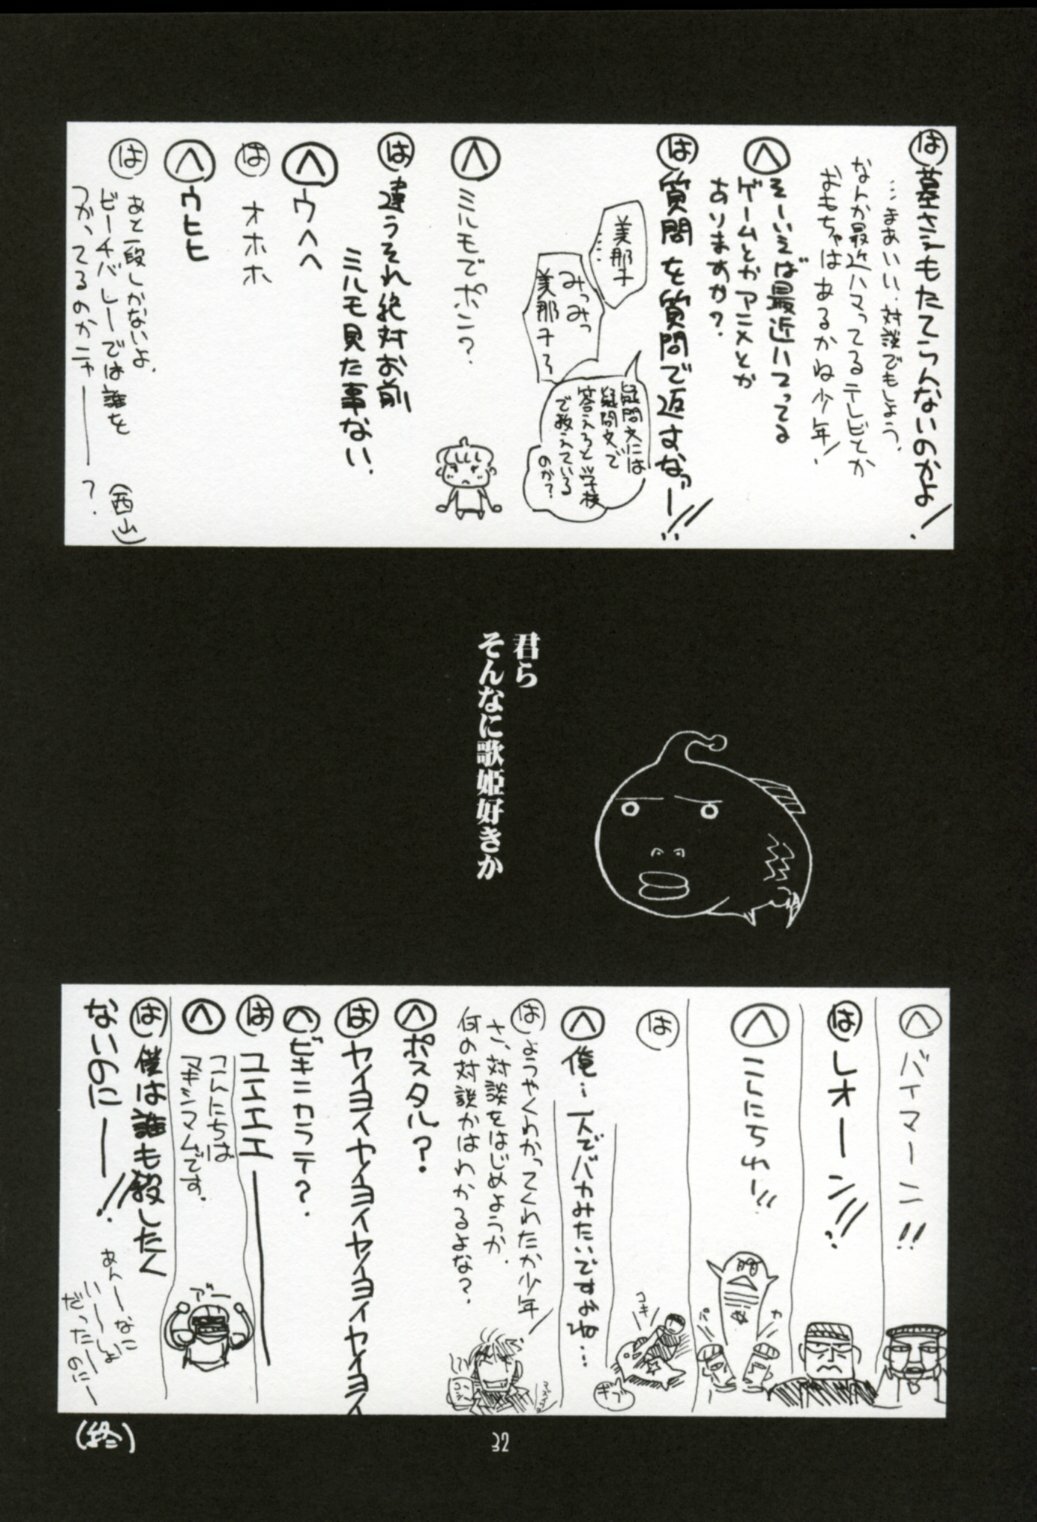 は 墓さえもたてらんないのかよ!
…まあいい、対談でもしよう、
なんか最近ハマってるテレビとか
おもちゃはあるかね少年!
へ そーいえば最近ハマってる
ゲームとかアニメとか
ありますか?
は 質問を質問で返すなーっ!!
美那子…
みつみつ
美那子ろ
疑問文には
疑問文で
答えろと学校
で教えている
のか?
へ ミルモでポン?
は 違うそれ絶対お前
ミルモ見た事ない、
へ ウヘヘ
は オホホ
へ ウヒヒ
は あと一段しかないよ、
ビーチバレーでは誰を
つかってるのかニャーー?
(西山)
君ら
そんなに歌姫好きか
へ バイマーン!!
は レオーン!!
へ こんにちわー!!
パ
カ
は
コキ
ギュッ
へ 俺…一人でバカみたいですよね…
は ようやくわかってくれたか少年!
さ、対談をはじめようか、
何の対談かはわかるよな?、
へ ポスタル?
は ヤイヨイヤイヨイヤイヨイヤイヨイヤイヨイ
へ ビキニカラテ?
は ユエエエー
へ こんにちは
マキシマムです。
は 僕は誰も殺したく
ないのにーー!!
あんーなに
いーーしょ
だったーのにー
(終)
32